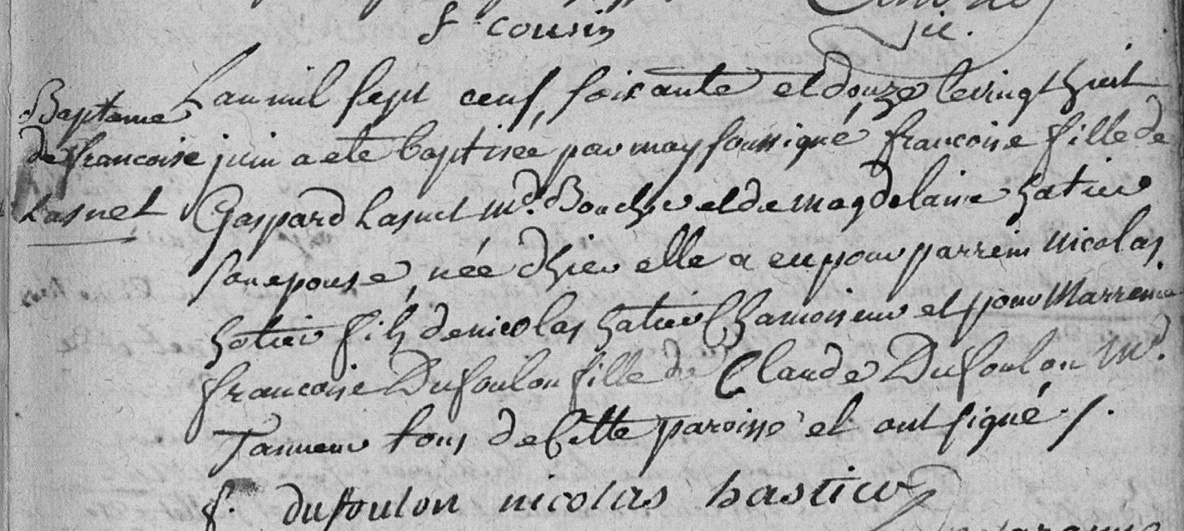 f cousin
Bapteme
de francoise
hasnet
L'an mil sept cent soixante et douze le vingt huit
juin a ete baptisée par moy soussigné francoise fille de
Gaspard hasnet md. Boucher et de magdelaine hatier
son epouse, née d'hier elle a eu pour parrein Nicolas
hatier fils de nicolas hatier Chamoiseur et pour Marreine
francoise Dufoulon fille de Claude Dufoulon Md.
Tanneur tous de Cette paroisse et ont signé /.
f. dufoulon nicolas hastier